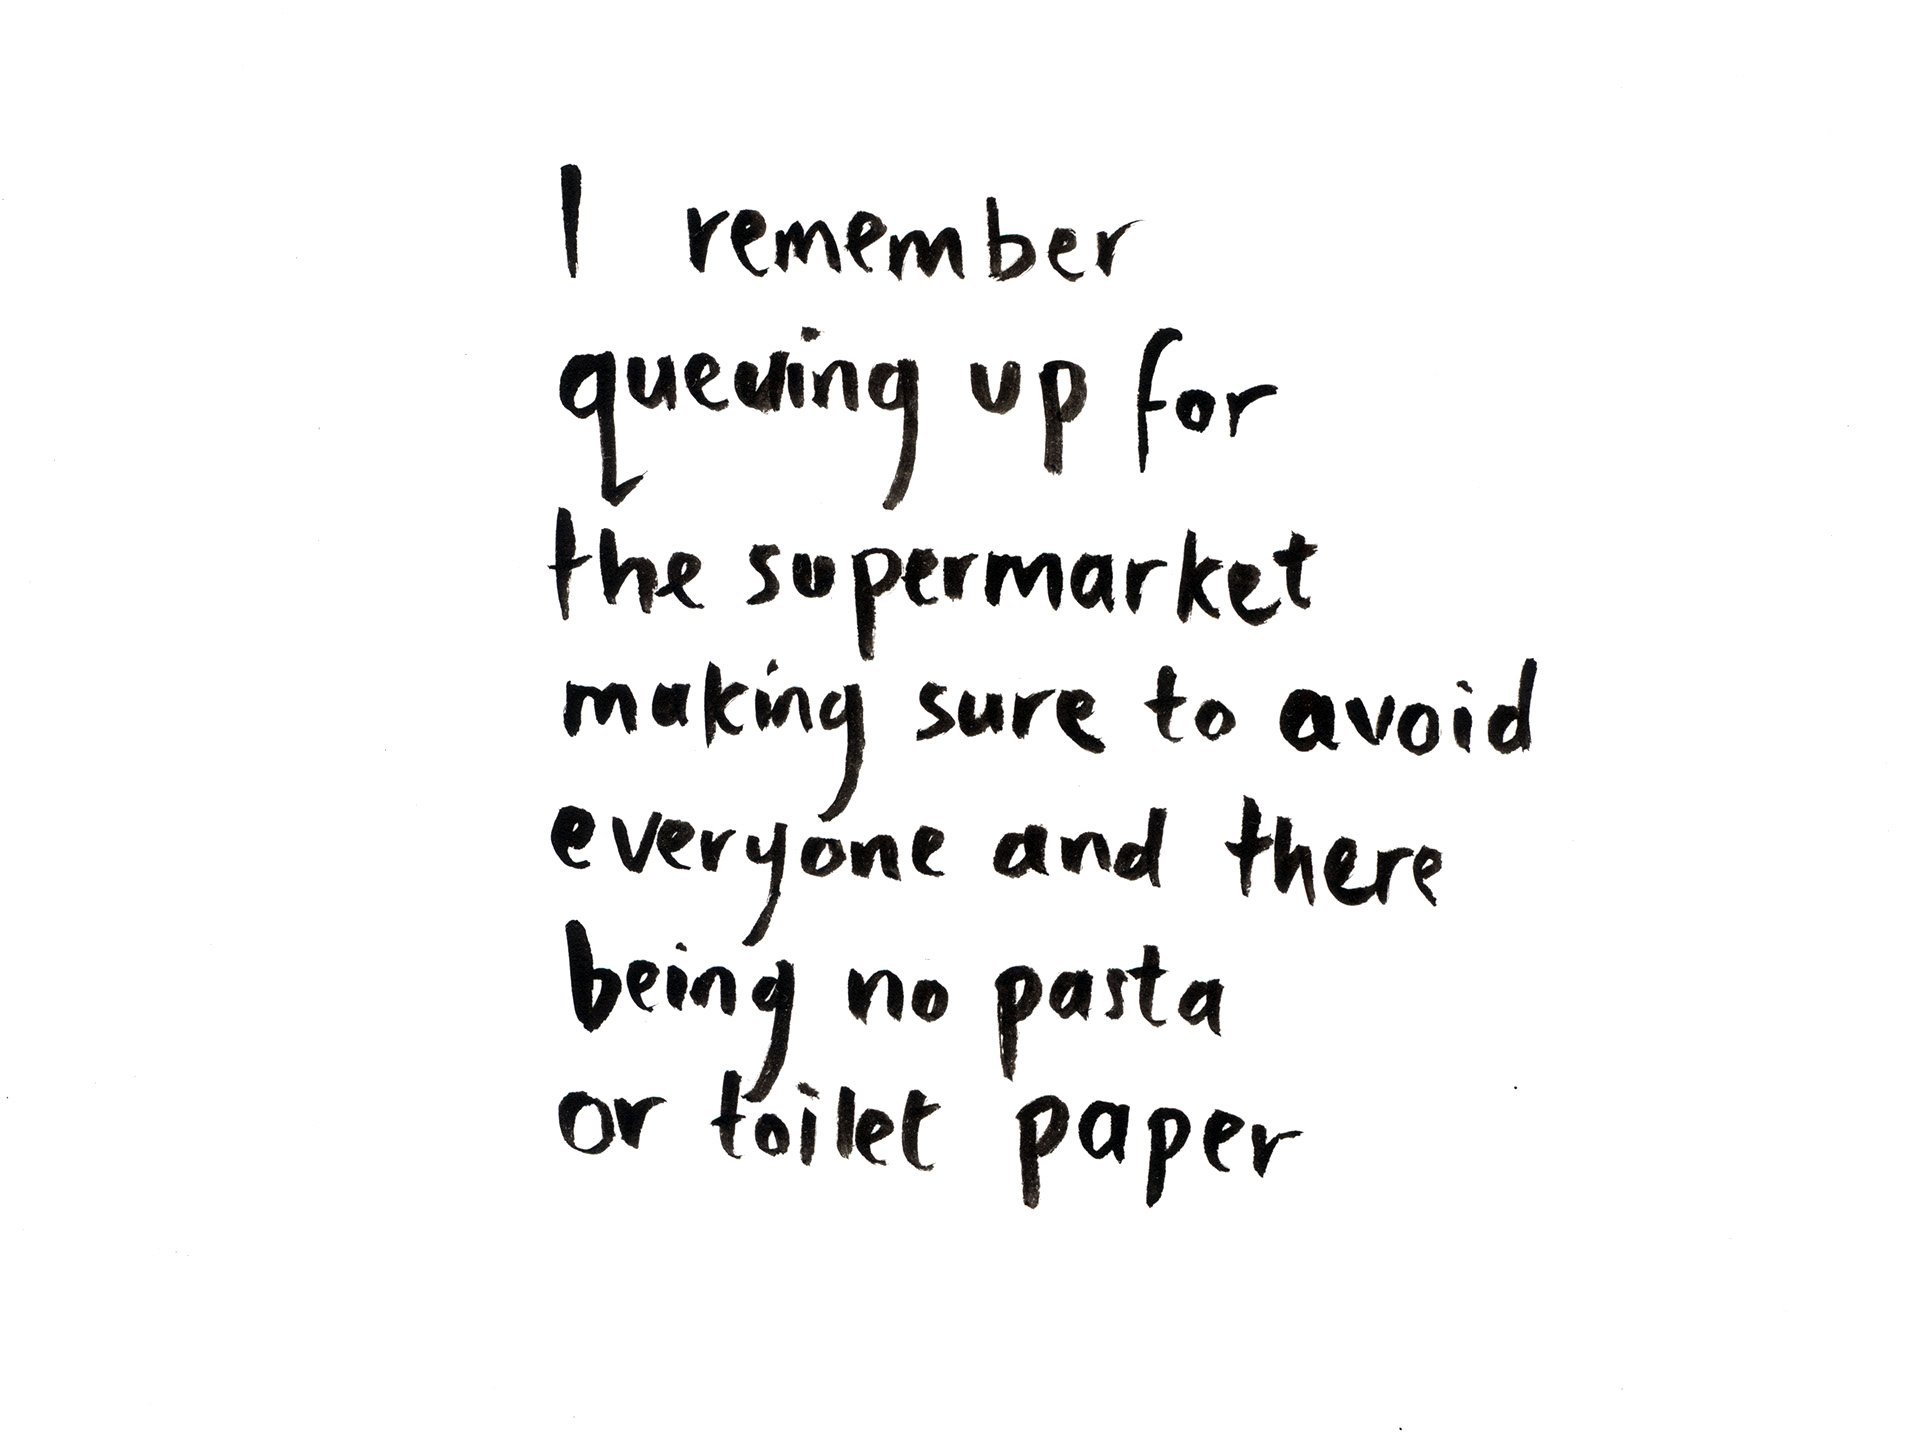 I remember
queuing up for
the supermarket
making sure to avoid
everyone and there
being no pasta
or toilet paper